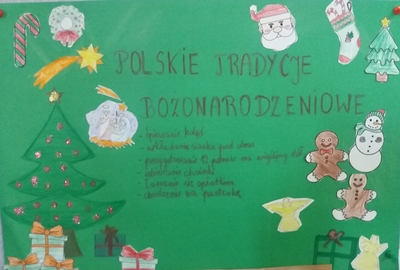 POLSKIE TRADYCJE
BOŻONARODZENIOWE
- śpiewanie kolęd
- wkładanie sianka pod obrus
- przygotowanie 12 potraw na wigilijny stół
- ubieranie choinki
- łamanie się opłatkiem
- chodzenie na pasterkę